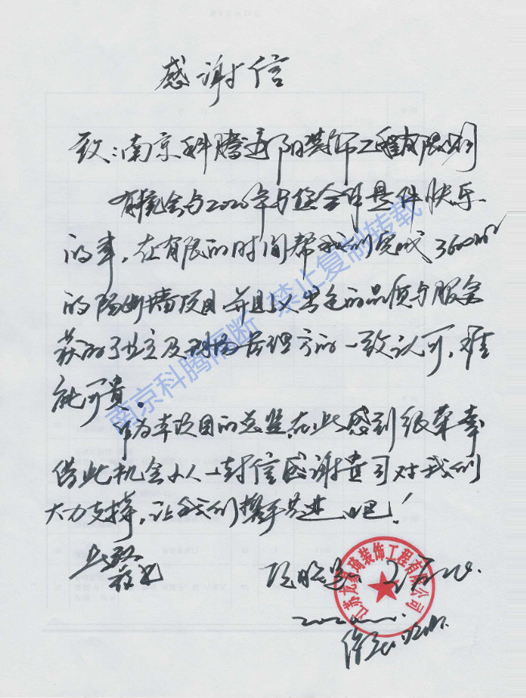 感谢信
致：南京科腾遮阳装饰工程有限公司
有机会与2020年与您合作是件快乐
的事，在有限的时间帮我们完成3600m²
的隔断墙项目并且以坚定的品质与服务
获得了业主及现场管理方的一致认可，难
能可贵。
作为本项目的总监在此感到很荣幸
借此机会以一封信感谢贵司对我们
大力支持，让我们携手共进吧！
此致
敬礼
2020
江苏龙 装饰工程有限公司
南京科腾隔断 禁止复制转载